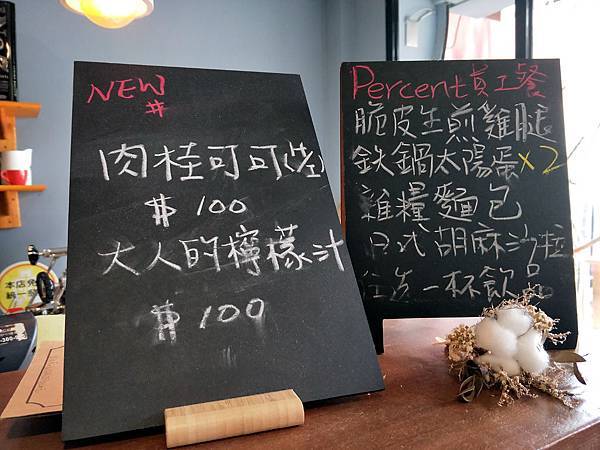 NEW
#
肉桂可可(法)
$ 100
大人的檸檬汁
$ 100
Percent員工餐
脆皮生煎雞腿
鉄鍋太陽蛋×2
雜糧麵包
日式胡麻沙拉
任選一杯飲品
本店免
統一發